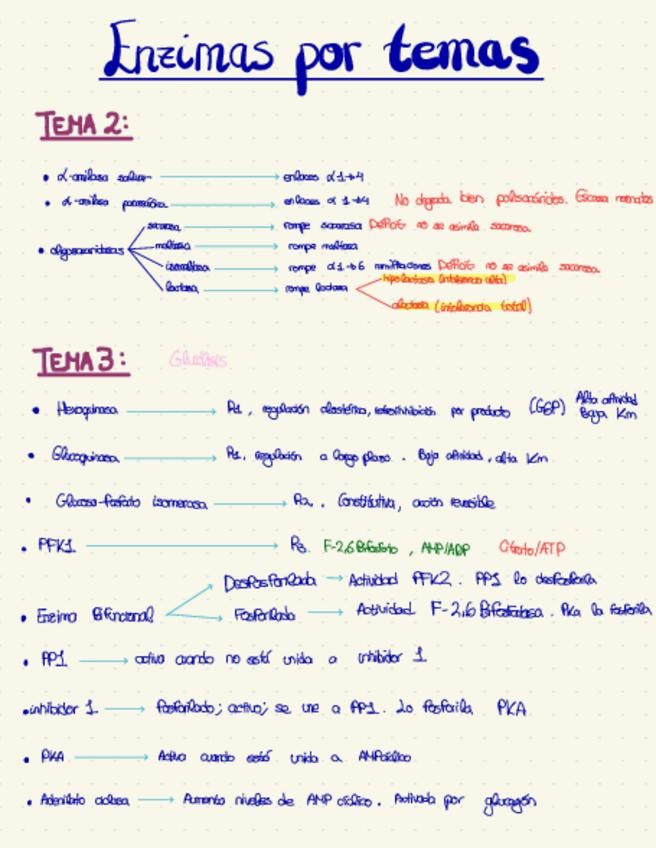 Enzimas por temas
TEMA 2:
• α-amilasa salivar → enlaces α1→4
• α-amilasa pancreática → enlaces α 1→4 No degrada bien polisacáridos. Escasa neonatos
• oligosacaridasas
sacarasa → rompe sacarosa Déficit no se asimila sacarosa
maltasa → rompe maltosa
isomaltasa → rompe α1→6 ramificaciones Déficit no se asimila sacarosa
lactasa → rompe lactosa
hipolactasia (intolerancia alta)
alactasia (intolerancia total)
TEMA 3: Glucólisis
• Hexoquinasa → R1, regulación alostérica, retroinhibición por producto (G6P) Alta afinidad
Baja Km
• Glucoquinasa → R1, regulación a largo plazo. Baja afinidad, alta Km
• Glucosa-fosfato isomerasa → R2. Constitutiva, acción reversible
• PFK1 → R3. F-2,6 Bifosfato, AMP/ADP Citrato/ATP
• Enzima Bifuncional
Desfosforilada → Actividad PFK2. PP1 lo desfosforila
Fosforilada → Actividad F-2,6 Bifosfatasa. PKa la fosforila
• PP1 → activa cuando no está unida a inhibidor 1
• inhibidor 1 → fosforilado; activo; se une a PP1. Lo fosforila PKA
• PKA → Activa cuando está unida a AMPcíclico
• Adenilato ciclasa → Aumenta niveles de AMP cíclico. Activada por glucagón